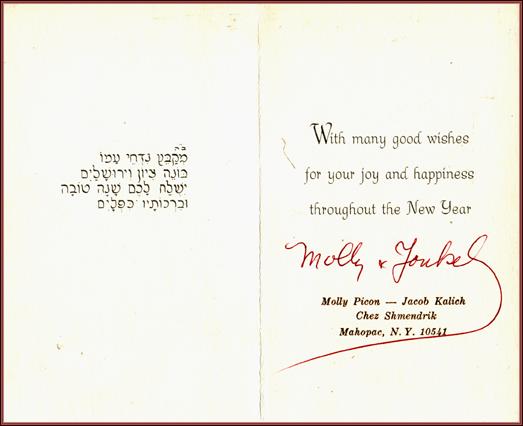 ב"ה
מְקַבֵּץ נִדְחֵי עַמּוֹ
בּוֹנֵה צִיּוֹן וִירוּשָׁלַיִם
יִשְׁלַח לָכֶם שָׁנָה טוֹבָה
וּבִרְכוֹתָיו כִּפְלַיִם
With many good wishes
for your joy and happiness
throughout the New Year
Molly & Yonkel
Molly Picon — Jacob Kalich
Chez Shmendrik
Mahopac, N. Y. 10541